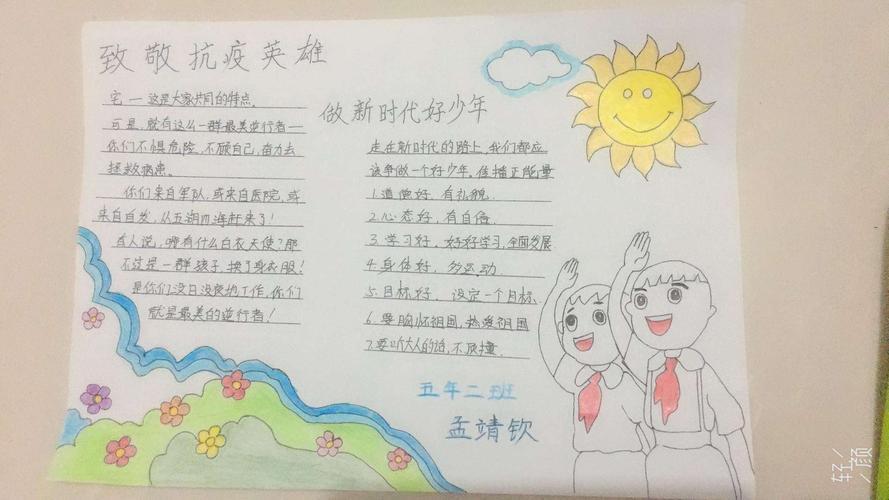 致敬抗疫英雄
宅一这是大家共同的特点。
可是,就有这么一群最美逆行者一
你们不惧危险,不顾自己,奋力去
拯救病患。
你们来自军队,或来自医院,或
来自自发,从五湖四海赶来了!
有人说,哪有什么白衣天使?那
不过是一群孩子,换了身衣服!
是你们没日没夜地工作,你们
就是最美的逆行者!
做新时代好少年
走在新时代的路上,我们都应
该争做一个好少年,传播正能量
1.道德好,有礼貌.
2.心态好,有自信.
3.学习好,好好学习,全面发展
4.身体好,多运动
5.目标好,设定一个目标.
6.要胸怀祖国,热爱祖国
7.要听大人的话,不顶撞.
五年二班
孟靖钦
轻颜